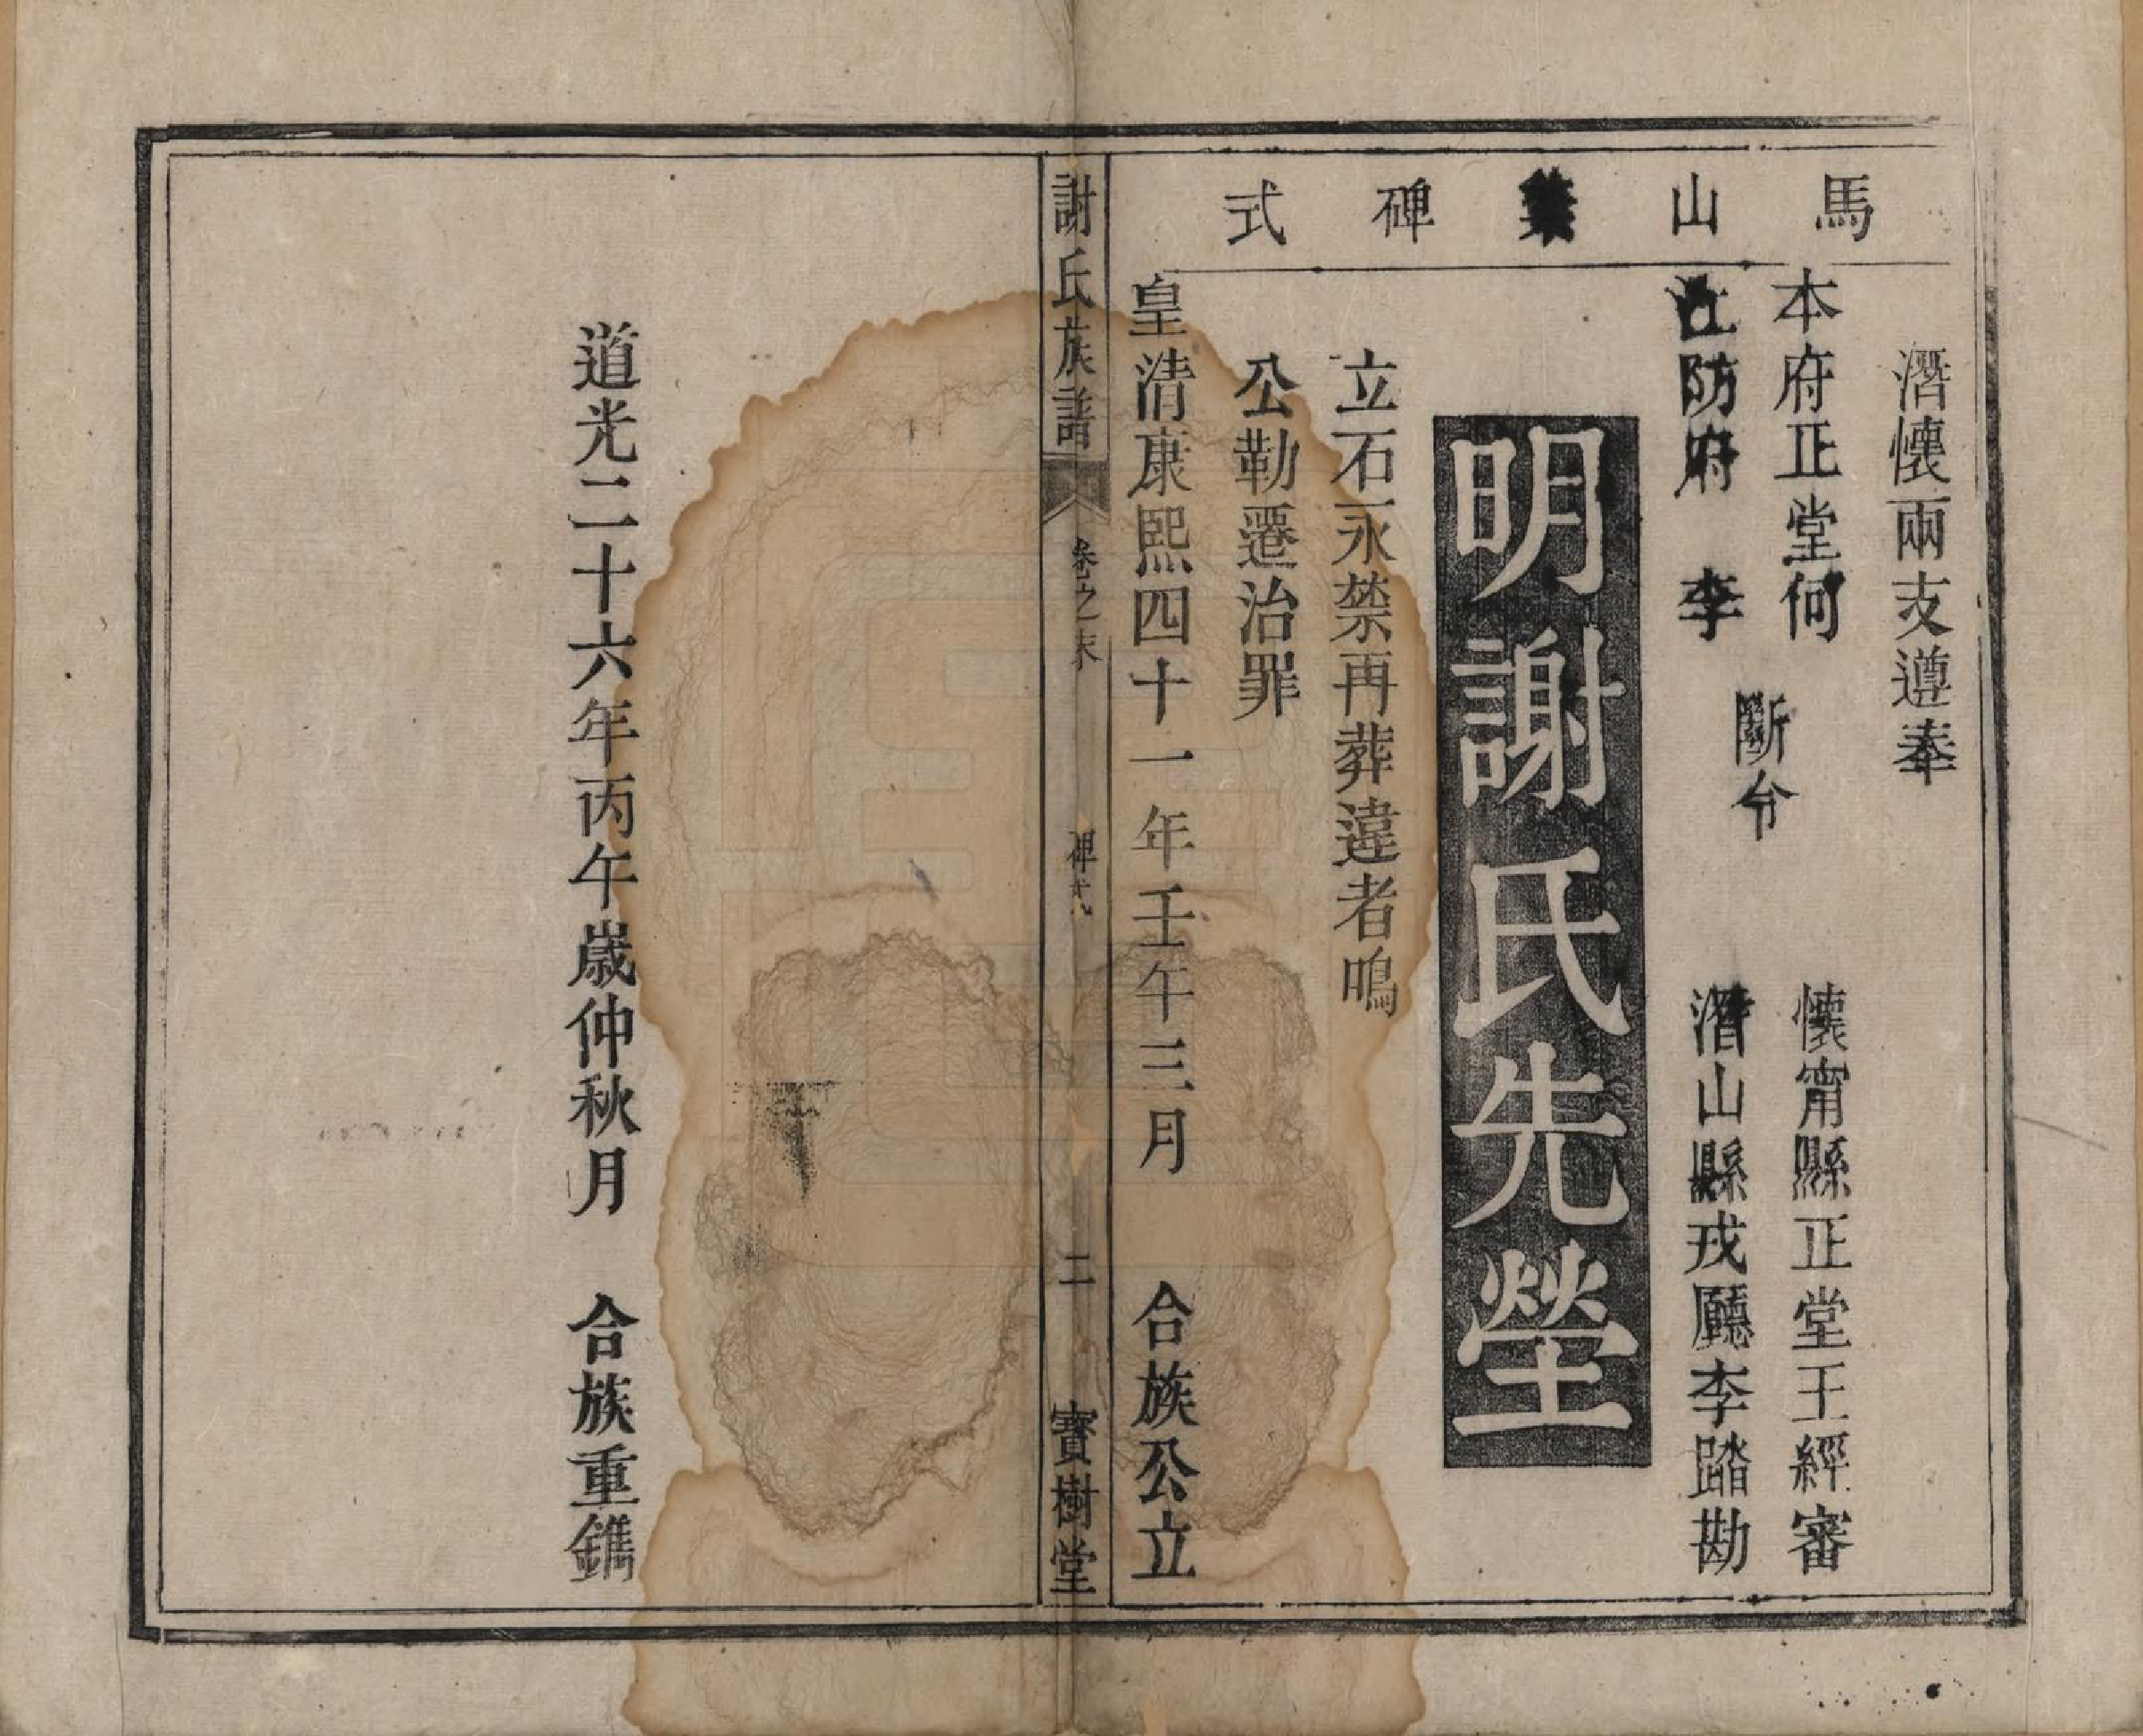 馬山禁碑式
潛懷兩支遵奉
本府正堂何
江防府　李
斷令
懷甯縣正堂王經審
潛山縣戎廳李踏勘
明謝氏先塋
立石永禁再葬違者鳴
公勒遷治罪
皇清康熙四十一年壬午三月　合族公立
謝氏族譜　卷之末　碑式　二　寶樹堂
道光二十六年丙午歲仲秋月　合族重鐫